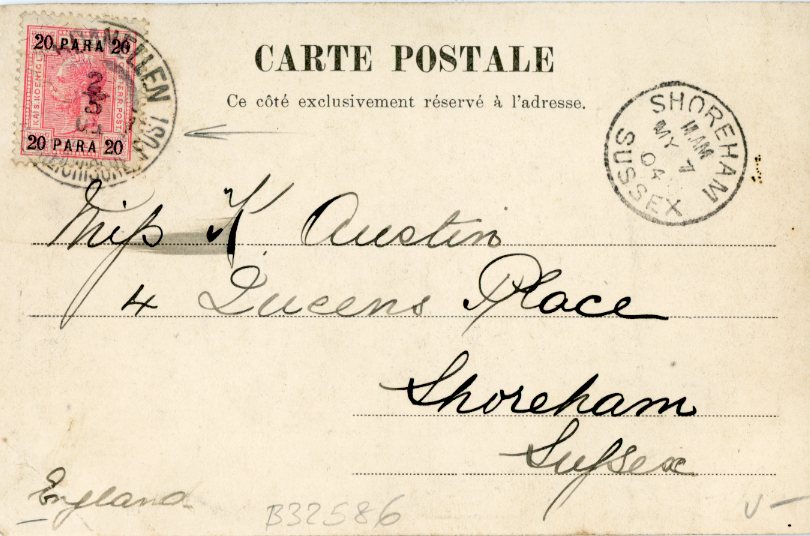 20 PARA 20
KAIS. KOENIGL.
ERR. POST
20 PARA 20
DANELLEN
POST
2
5
CARTE POSTALE
Ce côté exclusivement réservé à l'adresse.
SHOREHAM
11. AM
MY 7
04
SUSSEX
Miſs K. Austin
4 Queens Place
Shoreham
Suſsex
England
B32586